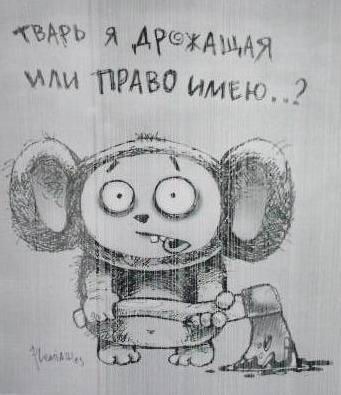 ТВАРЬ Я ДРОЖАЩАЯ
ИЛИ ПРАВО ИМЕЮ..?